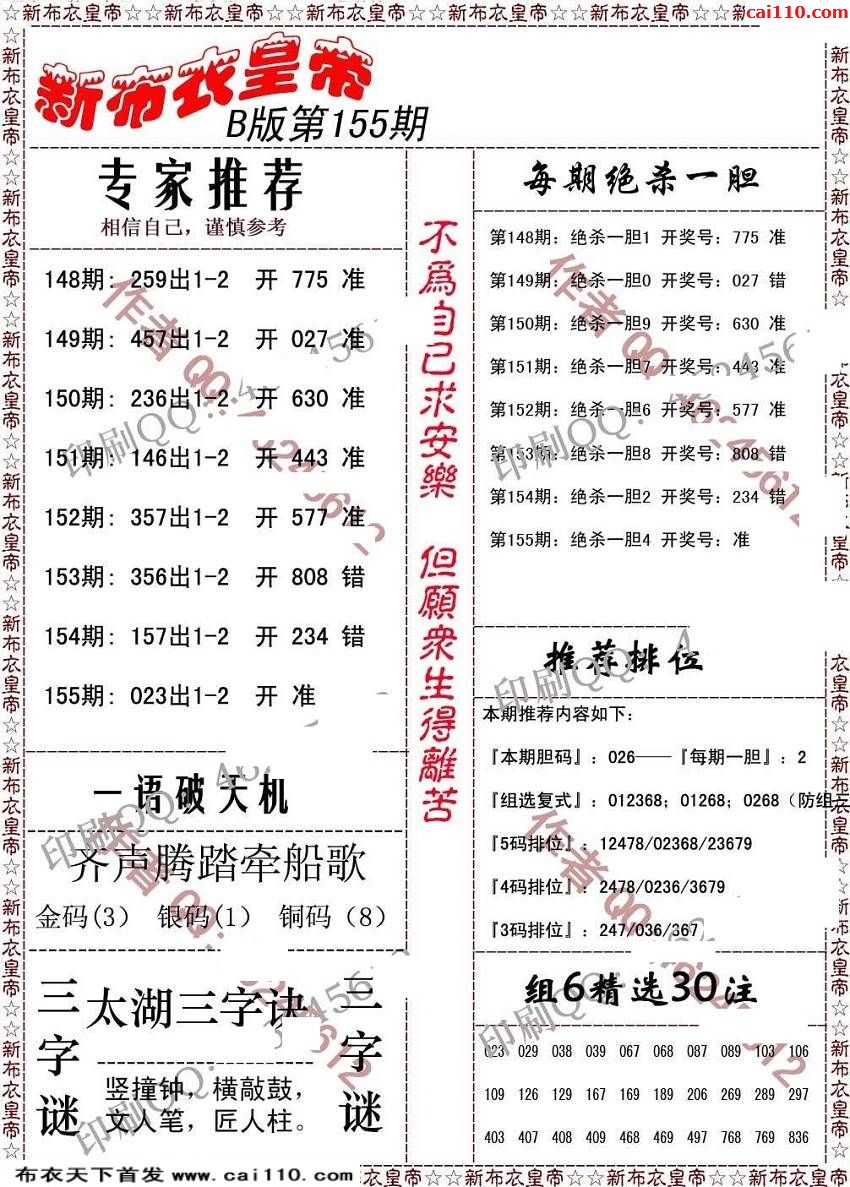 ☆☆新布衣皇帝☆☆新布衣皇帝☆☆新布衣皇帝☆☆新布衣皇帝☆☆新布衣皇帝☆☆新
cai110.com
新布衣皇帝
B版第155期
专家推荐
相信自己，谨慎参考
148期: 259出1-2 开 775 准
149期: 457出1-2 开 027 准
150期: 236出1-2 开 630 准
151期: 146出1-2 开 443 准
152期: 357出1-2 开 577 准
153期: 356出1-2 开 808 错
154期: 157出1-2 开 234 错
155期: 023出1-2 开 准
一语破天机
齐声腾踏牵船歌
金码(3) 银码(1) 铜码（8）
三字谜
太湖三字诀
竖撞钟，横敲鼓，
文人笔，匠人柱。
三字谜
不為自己求安樂 但願衆生得離苦
每期绝杀一胆
第148期: 绝杀一胆1 开奖号: 775 准
第149期: 绝杀一胆0 开奖号: 027 错
第150期: 绝杀一胆9 开奖号: 630 准
第151期: 绝杀一胆7 开奖号: 443 准
第152期: 绝杀一胆6 开奖号: 577 准
第153期: 绝杀一胆8 开奖号: 808 错
第154期: 绝杀一胆2 开奖号: 234 错
第155期: 绝杀一胆4 开奖号: 准
推荐排位
本期推荐内容如下:
『本期胆码』: 026——『每期一胆』: 2
『组选复式』: 012368; 01268; 0268（防组三
『5码排位』: 12478/02368/23679
『4码排位』: 2478/0236/3679
『3码排位』: 247/036/367
组6精选30注
023 029 038 039 067 068 087 089 103 106
109 126 129 167 169 189 206 269 289 297
403 407 409 468 469 497 768 769 836
布衣天下首发 www.cai110.com
衣皇帝☆☆新布衣皇帝☆☆新布衣皇帝☆☆新布衣皇帝☆☆